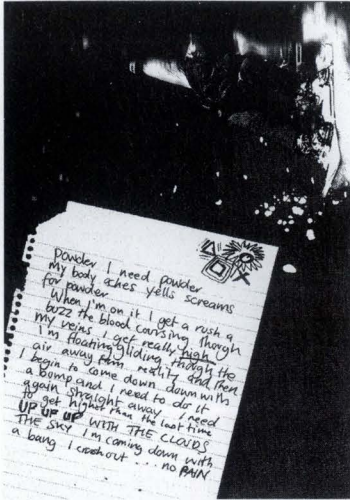 Powder I need powder
my body aches yells screams
for powder
When I'm on it I get a rush a
buzz the blood coursing though
my veins. I get really high
I'm floating/gliding though the
air away from reality, and then
I begin to come down down with
a bomp and I need to do it
again straight away. I need
to get higher than the last time
UP UP UP WITH THE CLOUDS
THE SKY I'm coming down with
a bang I crash out... no PAIN